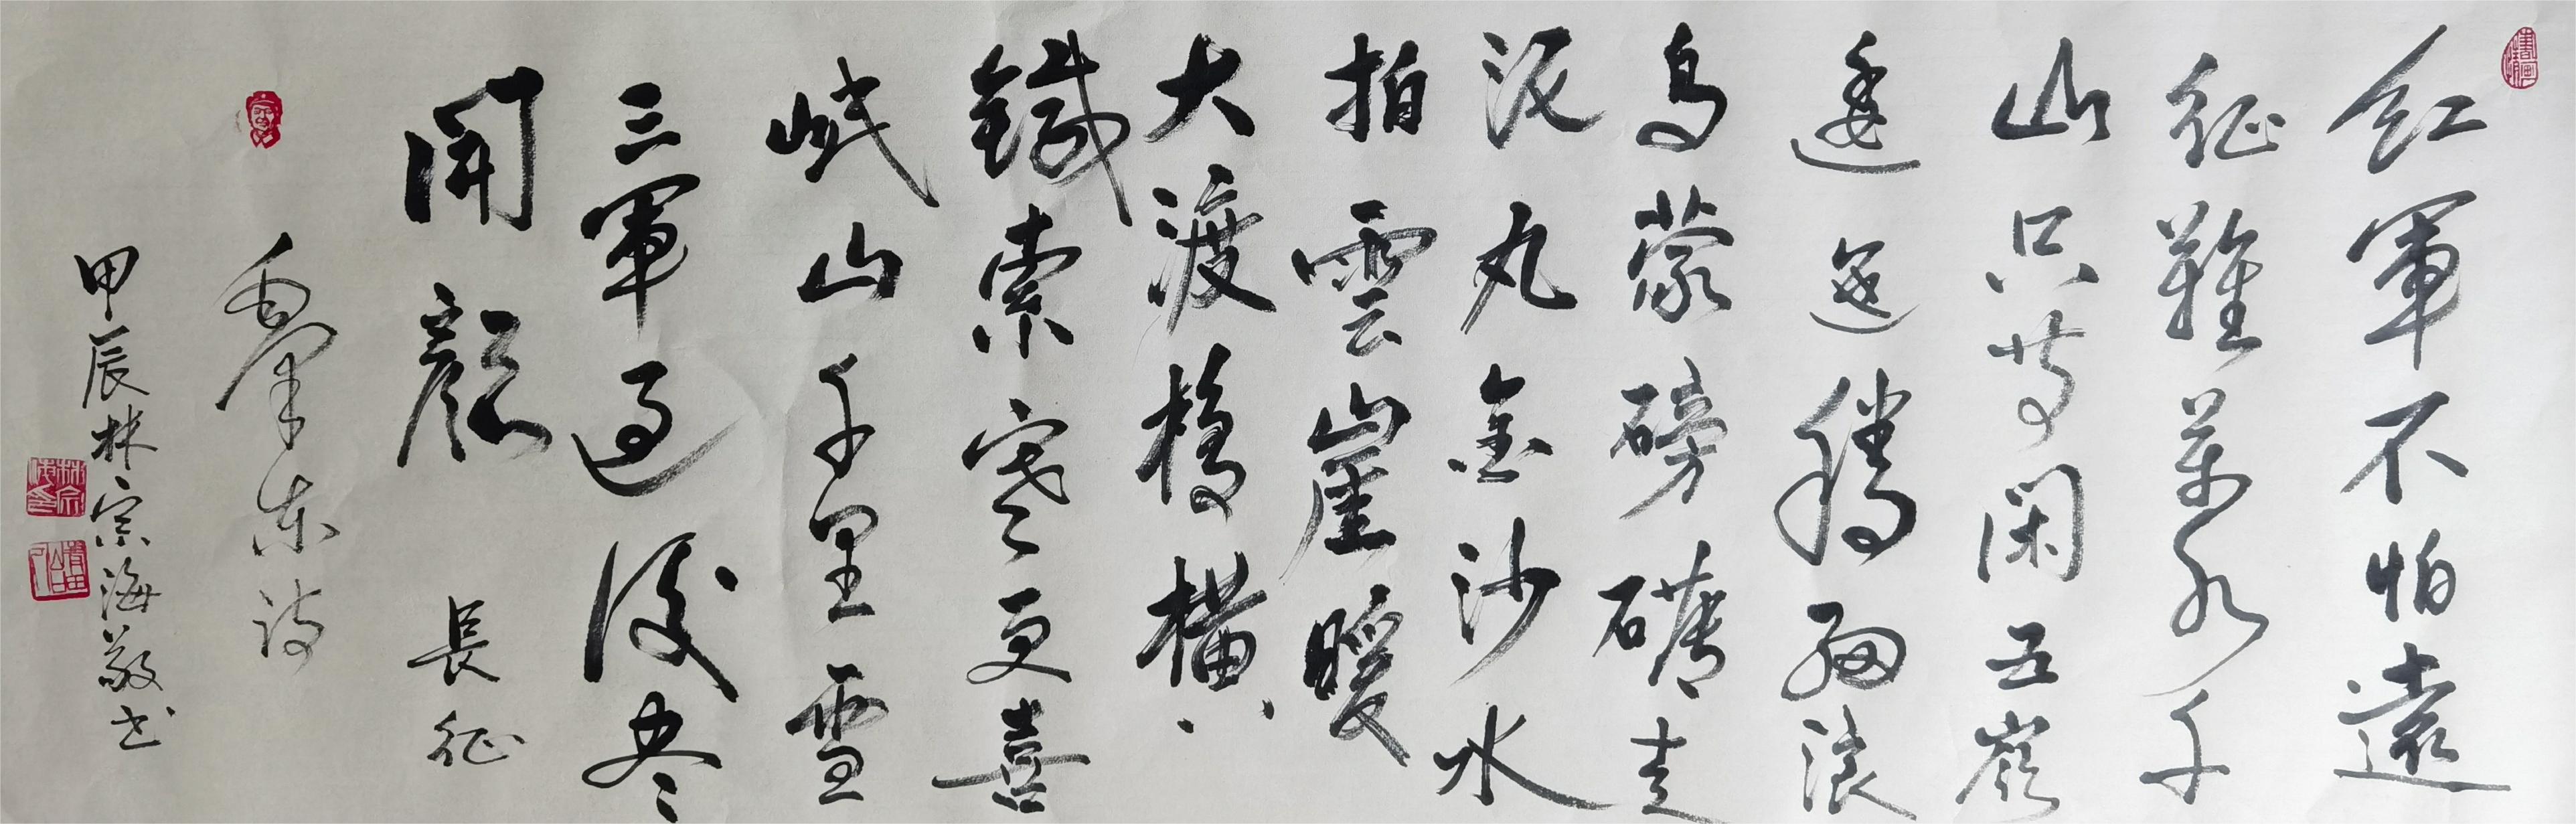 紅軍不怕遠
征難萬水千
山只等閑五嶺
逶迤騰細浪
烏蒙磅礴走
泥丸金沙水
拍雲崖暖
大渡橋橫
鐵索寒更喜
岷山千里雪
三軍過後尽
開顏 長征
毛澤东詩
甲辰林宗海敬书